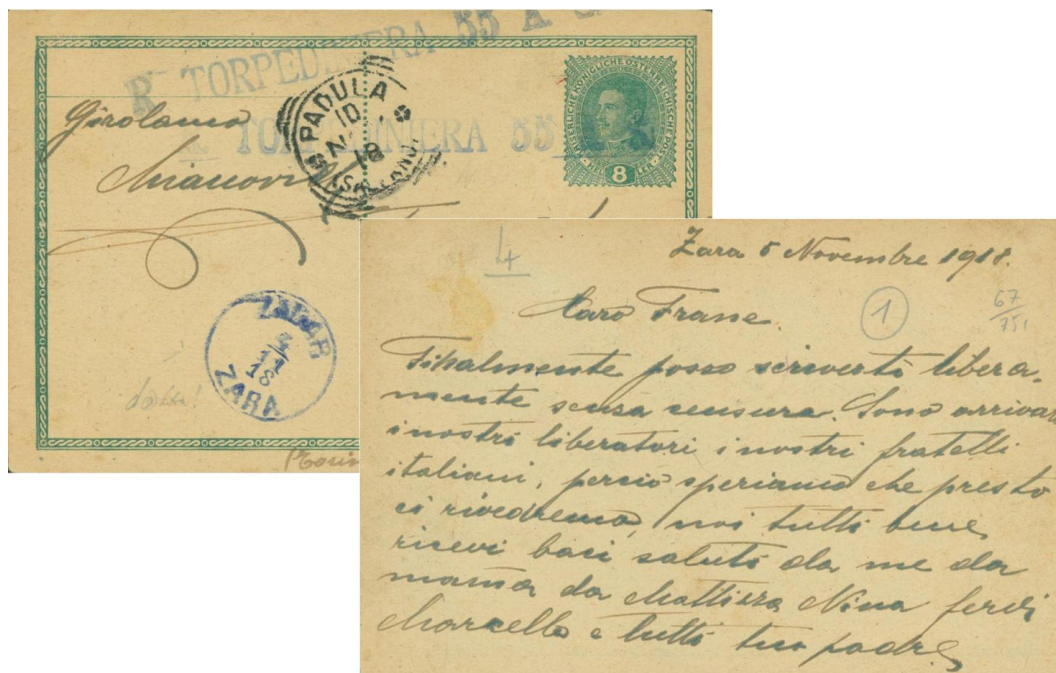 R TORPEDINIERA 55 A
TORPEDINIERA 55
KAISERLICHE KÖNIGLICHE ÖSTERREICHISCHE POST
8
PADULA
10
18
Girolamo
ZADAR
11
18
ZARA
4
Zara 5 Novembre 1918.
1
67
751
Caro Frane
Finalmente posso scriverti libera-
mente senza censura. Sono arrivati
i nostri liberatori i nostri fratelli
italiani, perciò speriamo che presto
ci rivedremo, noi tutti bene,
ricevi baci saluti da me da
mama da Nina ferdi
Marcello e tutti tuo padre,